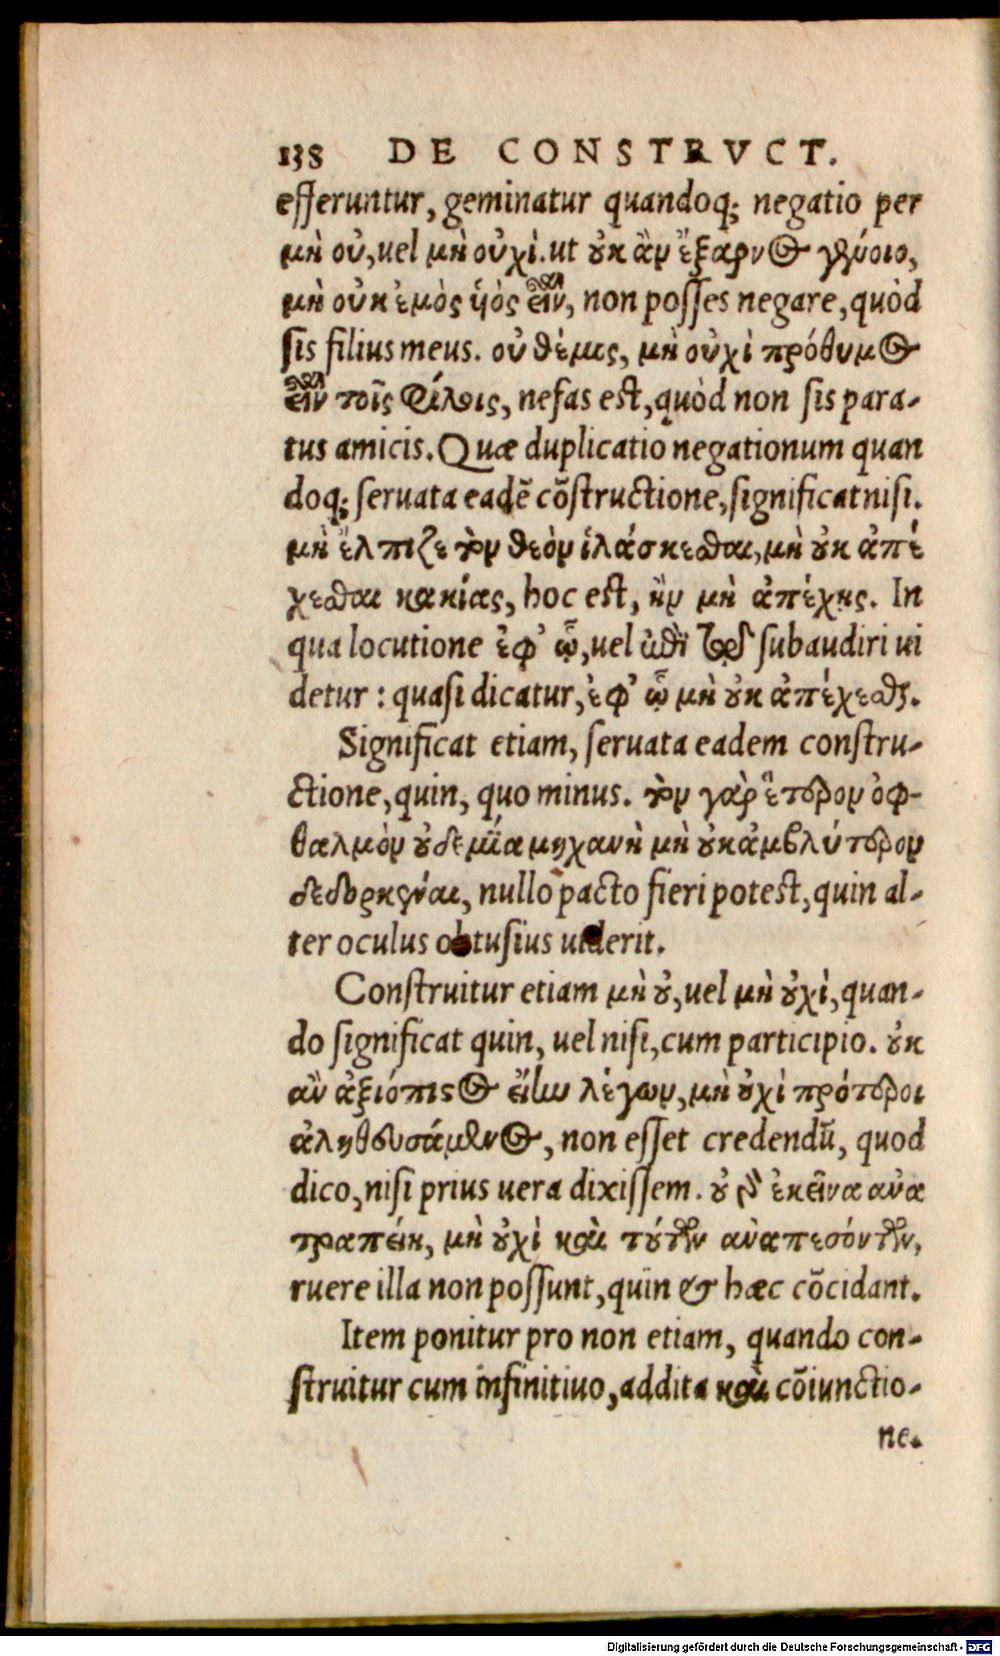 138 DE CONSTRVCT.
efferuntur, geminatur quandoq; negatio per
μὴ οὐ, uel μὴ οὐχὶ. ut οὐκ ἂν ἔξαρνος γένοιο,
μὴ οὐκ ἐμὸς ὑὸς εἶναι, non posses negare, quòd
sis filius meus. οὐ θέμις, μὴ οὐχὶ πρόθυμος
εἶναι τοῖς φίλοις, nefas est, quòd non sis para-
tus amicis. Quæ duplicatio negationum quan
doq; seruata eadē cōstructione, significat nisi.
μὴ ἔλπιζε τὸν θεὸν ἱλάσκεσθαι, μὴ οὐκ ἀπέ
χεσθαι κακίας, hoc est, ἢν μὴ ἀπέχῃς. In
qua locutione ἐφ' ᾧ, uel subaudiri ui
detur : quasi dicatur, ἐφ' ᾧ μὴ οὐκ ἀπέχεσθαι.
Significat etiam, seruata eadem constru-
ctione, quin, quo minus. τὸν γὰρ ἕτερον ὀφ-
θαλμὸν οὐδεμία μηχανὴ μὴ οὐκ ἀμβλύτερον
δεδορκέναι, nullo pacto fieri potest, quin al-
ter oculus obtusius uiderit.
Construitur etiam μὴ οὐ, uel μὴ οὐχὶ, quan-
do significat quin, uel nisi, cum participio. οὐκ
ἂν ἀξιόπιστος εἴην λέγων, μὴ οὐχὶ πρότεροι
ἀληθευσάμενος, non esset credendū, quod
dico, nisi prius uera dixissem. οὐ δ' ἐκεῖνα ἀνα
τραπείη, μὴ οὐχὶ καὶ τούτων ἀναπεσόντων,
ruere illa non possunt, quin & hæc cōcidant.
Item ponitur pro non etiam, quando con-
struitur cum infinitiuo, addita καὶ cōiunctio-
ne.
Digitalisierung gefördert durch die Deutsche Forschungsgemeinschaft - DFG